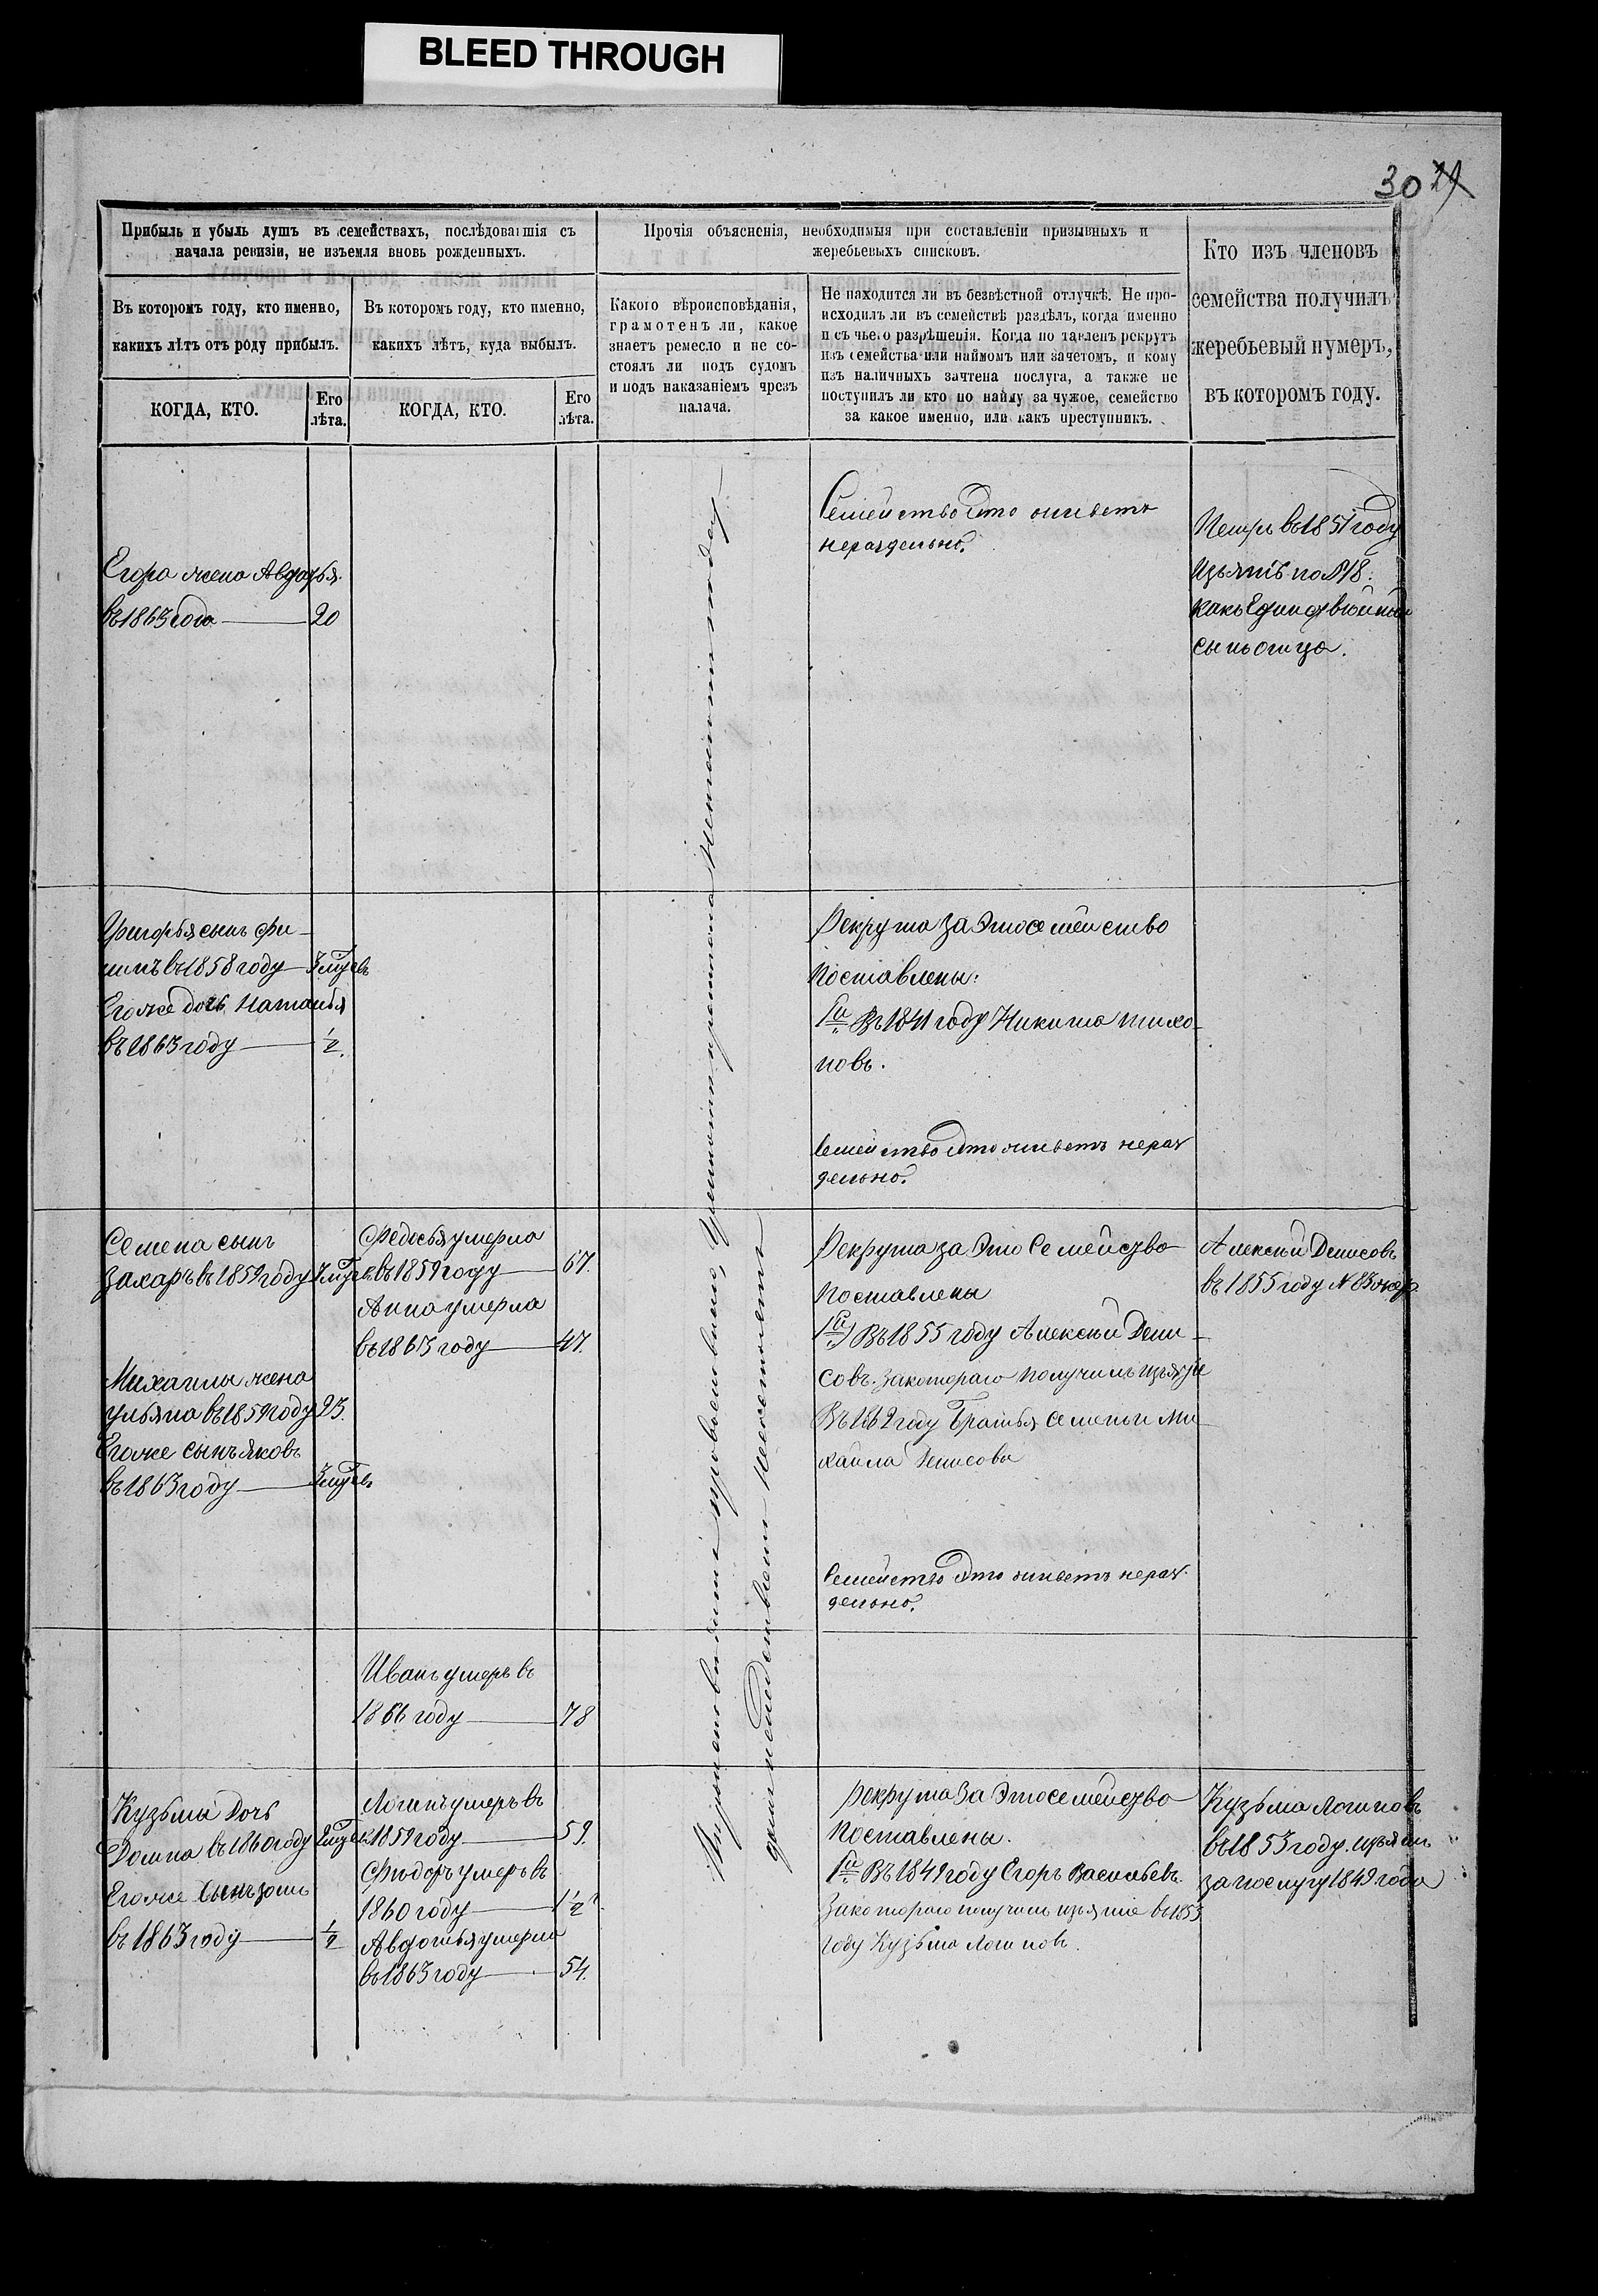 BLEED THROUGH
30 29
Прибыль и убыль душъ въ семействахъ, послѣдовавшія съ
начала ревизіи, не изъемля вновь рожденныхъ.
Прочія объясненія, необходимыя при составленіи призывныхъ и
жеребьевыхъ списковъ.
Кто изъ членовъ
семейства получилъ
жеребьевый нумеръ,
въ которомъ году.
Въ которомъ году, кто именно,
какихъ лѣтъ отъ роду прибылъ.
Въ которомъ году, кто именно,
какихъ лѣтъ, куда выбылъ.
Какого вѣроисповѣданія,
грамотенъ ли, какое
знаетъ ремесло и не со-
стоялъ ли подъ судомъ
и подъ наказаніемъ чрезъ
палача.
Не находится ли въ безвѣстной отлучкѣ. Не про-
исходилъ ли въ семействѣ раздѣлъ, когда именно
и съ чьего разрѣшенія. Когда поставленъ рекрутъ
изъ семейства или наймомъ или зачетомъ, и кому
изъ наличныхъ зачтена послуга, а также не
поступилъ ли кто по найму за чужое, семейство
за какое именно, или какъ преступникъ.
КОГДА, КТО.
Его
лѣта.
КОГДА, КТО.
Его
лѣта.
Егора жена Авдотья
въ 1863 года — 20
Семейство Это живетъ
нераздельно.
Петръ въ 1851 году
Изьятіе по № 18.
какъ
сынъ отца.
Григорья сынъ Фи-
липъ въ 1858 году —
Егоже дочь Наталья
въ 1863 году — 1/2.
Рекрута За Это семейство
Поставлены:
1й Въ 1841 году Никита Тихо-
новъ.
Семейство Это живетъ нераз
дельно.
Семена сынъ
Захаръ въ 1859 году
Михаилы жена
Ульяна въ 1859 году 23.
Егоже сынъ Яковъ
въ 1863 году —
Федосья умерла
въ 1859 году — 67.
Анна умерла
въ 1863 году — 47.
Рекрута за Это Семейство
Поставлены
1й) Въ 1855 году Алексѣй Дени-
совъ. Закотораго получили изъятіе
Въ 1862 году Братья Семенъ и Ми-
хаила Денисовы
Семейство Это живетъ нераз-
дельно.
Алексѣй Денисовъ
въ 1855 году № 83
Иванъ умеръ въ
1866 году — 78
Кузьмы Дочь
Домна въ 1860 году
Егоже Сынъ
въ 1863 году — 1/2
Логинъ умеръ въ
1859 году — 59.
Фѣодоръ умеръ въ
1860 году — 1 1/2
Авдотья умерла
въ 1863 году — 54.
Рекрута За Это семейство
Поставлены.
1й Въ 1849 году Егоръ Васильевъ.
Закотораго получилъ изъятіе въ 1853
году Кузьма Логиновъ.
Кузьма Логиновъ
въ 1853 году. изъятъ
за послугу 1849 года